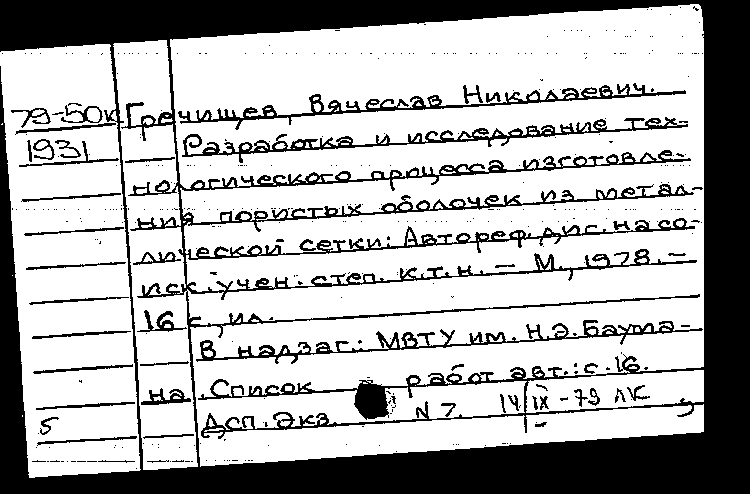 79-50к Гречищев, Вячеслав Николаевич.
1931 Разработка и исследование тех-
нологического процесса изготовле-
ния пористых оболочек из метал-
лической сетки: Автореф. дис. на со-
иск. учен. степ. к.т.н. – М., 1978. –
16 с., ил.
В надзаг.: МВТУ им. Н.Э. Баума-
на. Список работ авт.: с. 16.
5 Дсп. Экз. N 7. 14/IX-79 ЛК